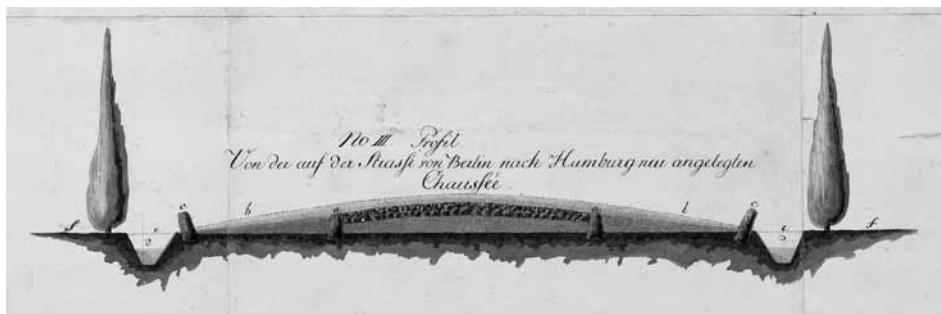 No III. Profil
Von der auf der Strasse von Berlin nach Hamburg neu angelegten
Chaussée
c b a a b c
f e e f